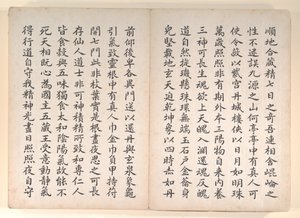 順地合藏精七日之奇吾連相舍崐崘之
性不迷誤九源之山何亭亭中有真人可
使令蔽以紫宮丹城樓俠以日月如明珠
萬歲照照非有期外本三陽物自來內養
三神可長生魂欲上天魄入淵還魂反魄
道自然旋璣懸珠環無端玉石戶金籥身
兒堅載地玄天迫乾坤象以四時赤如丹
前仰後卑各異門送以還丹與玄泉象龜
引氣致靈根中有真人巾金巾負甲持符
開七門此非枝葉實是根晝夜思之可長
存仙人道士非可神積精所致和專仁人
皆食穀與五味獨食太和陰陽氣故能不
死天相既心為國主五藏王受意動靜氣
得行道自守我精神光晝日照照夜自守